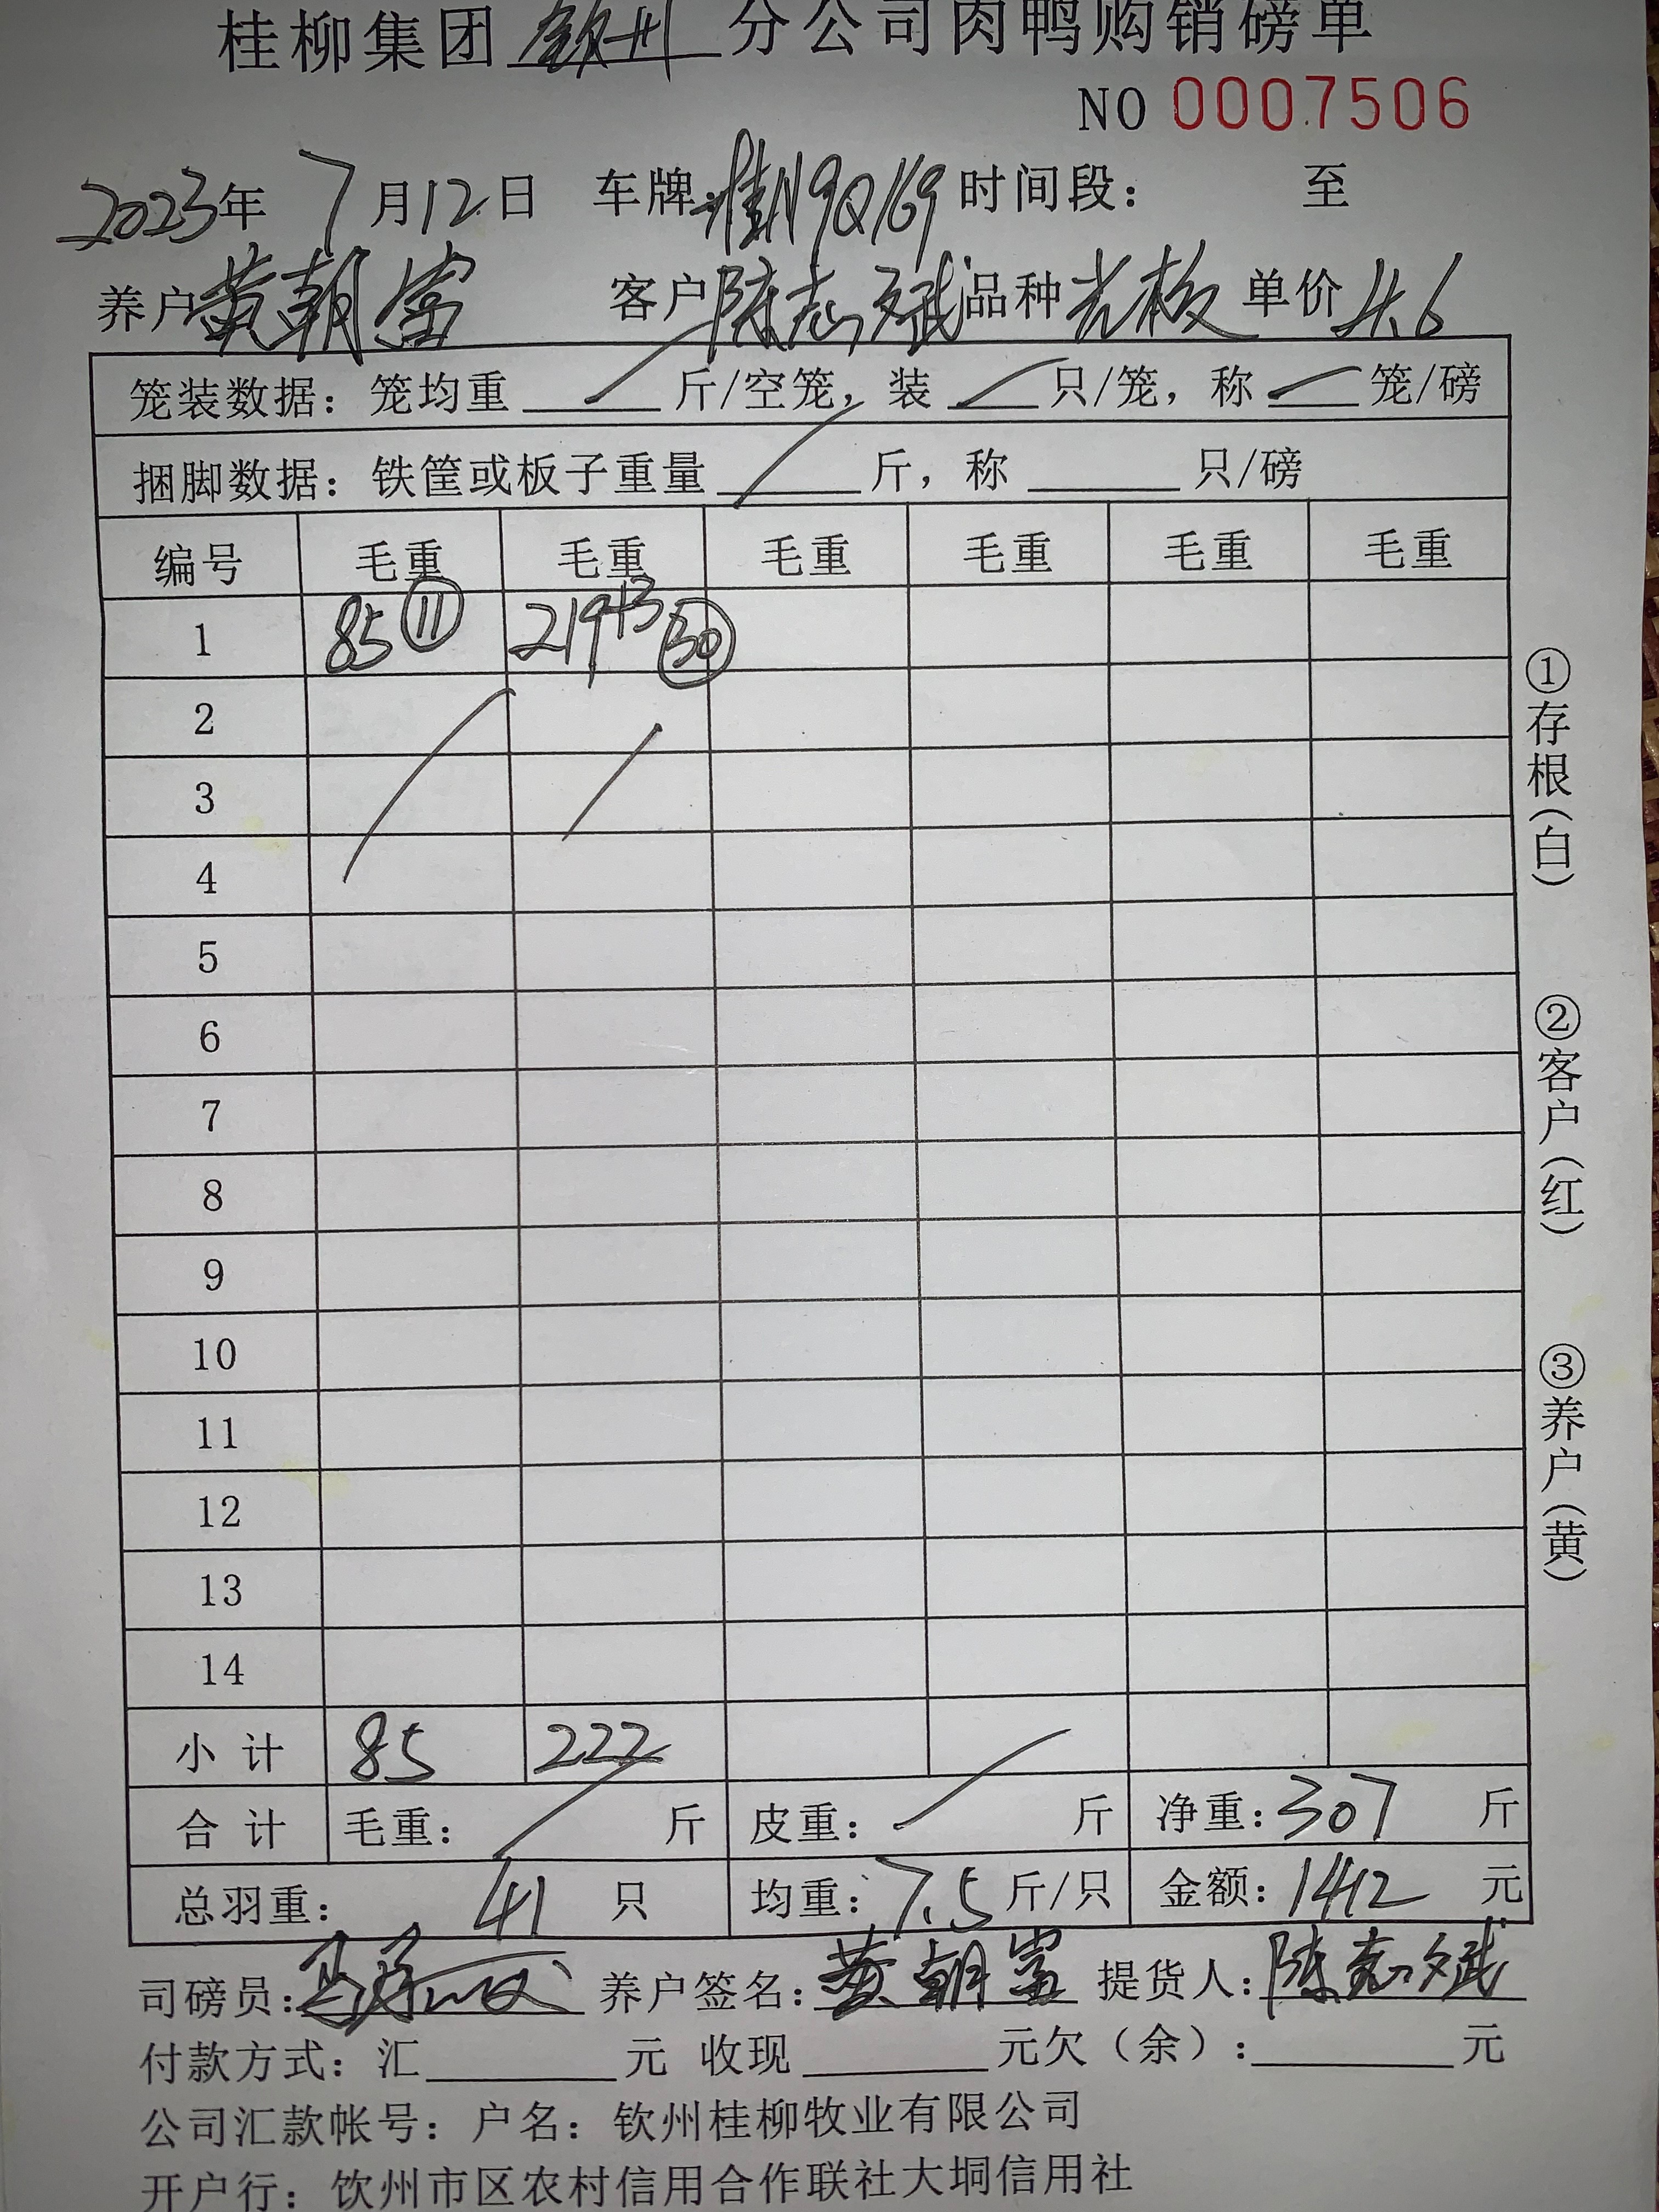 桂柳集团 钦州 分公司肉鸭购销磅单
NO 0007506
2023年 7月12日 车牌:桂N9Q169 时间段: 至
养户 黄朝富 客户 陈志斌 品种 光板 单价 4.6
笼装数据:笼均重 斤/空笼,装 只/笼,称 笼/磅
捆脚数据:铁筐或板子重量 斤,称 只/磅
编号 毛重 毛重 毛重 毛重 毛重 毛重
1 85 ⑪ 219+3 ㉚
2
3
4
5
6
7
8
9
10
11
12
13
14
小计 85 222
合计 毛重: 斤 皮重: 斤 净重:307 斤
总羽重: 41 只 均重:7.5 斤/只 金额:1412 元
司磅员: 养户签名:黄朝富 提货人:陈志斌
付款方式:汇 元 收现 元欠(余): 元
公司汇款帐号:户名:钦州桂柳牧业有限公司
开户行:钦州市区农村信用合作联社大垌信用社
①存根(白)
②客户(红)
③养户(黄)